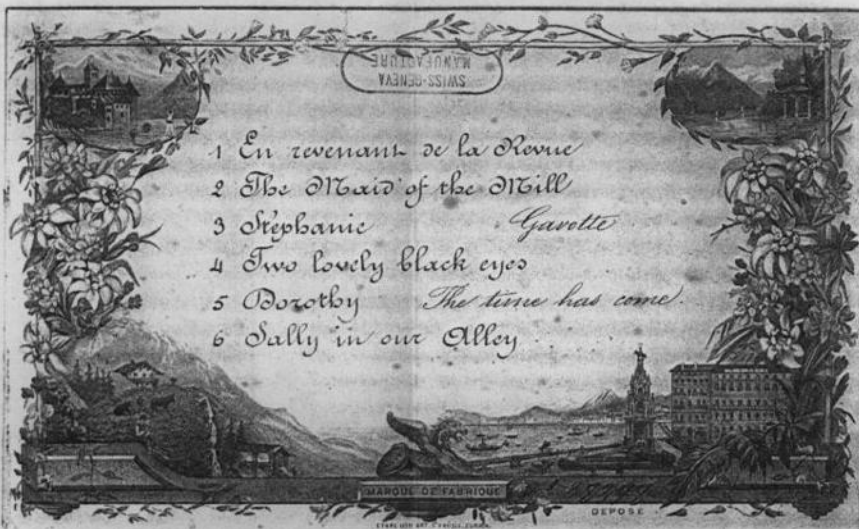 SWISS-GENEVA
MANUFACTURE
1 En revenant de la Revue
2 The Maid of the Mill
3 Stéphanie Gavotte
4 Two lovely black eyes
5 Dorothy The time has come.
6 Sally in our Alley
MARQUE DE FABRIQUE
DEPOSÉ